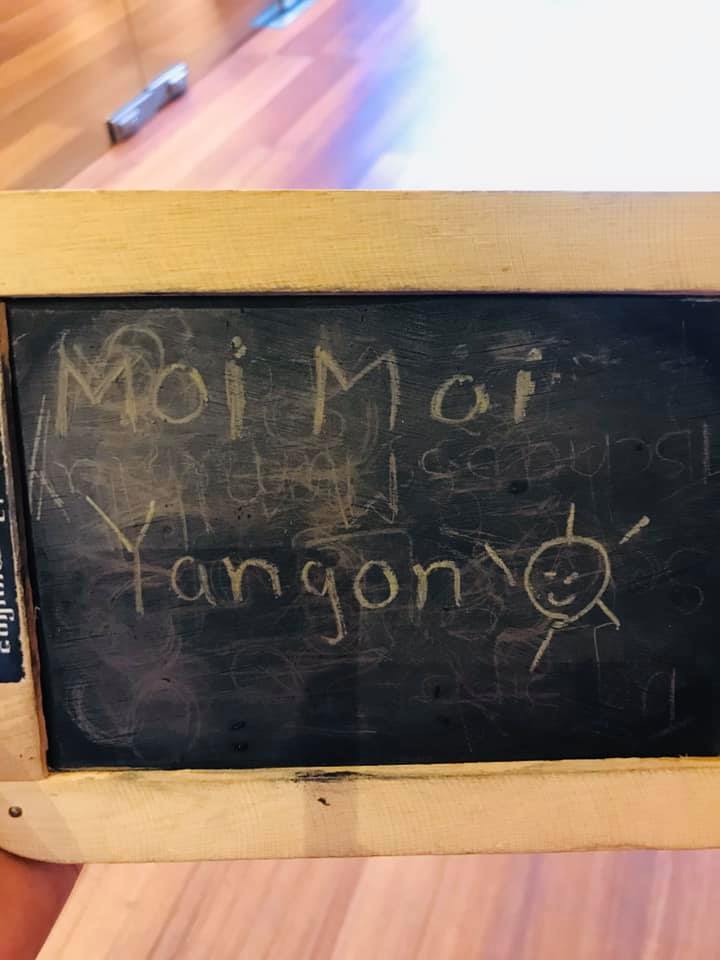 Moi Moi
Yangon